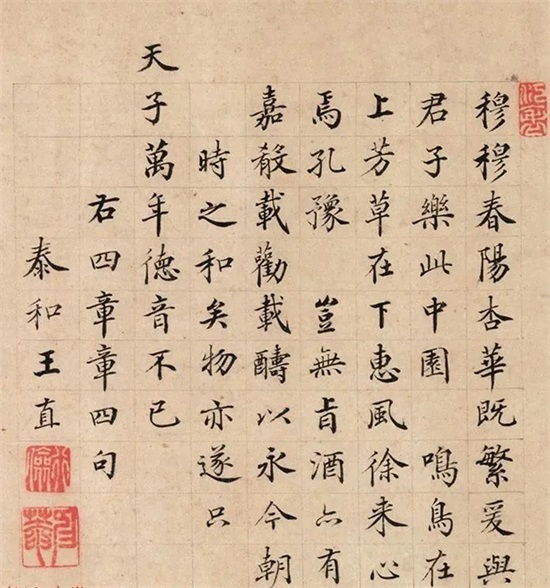 穆穆春陽杏華既繁爰與
君子樂此中園　鳴鳥在
上芳草在下惠風徐来心
焉孔豫　豈無旨酒亦有
嘉殽載勸載醻以永今朝
時之和矣物亦遂只
天子萬年徳音不已
右四章章四句
泰和王直